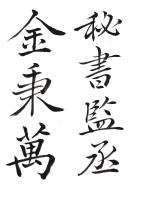 秘書監丞
金秉萬